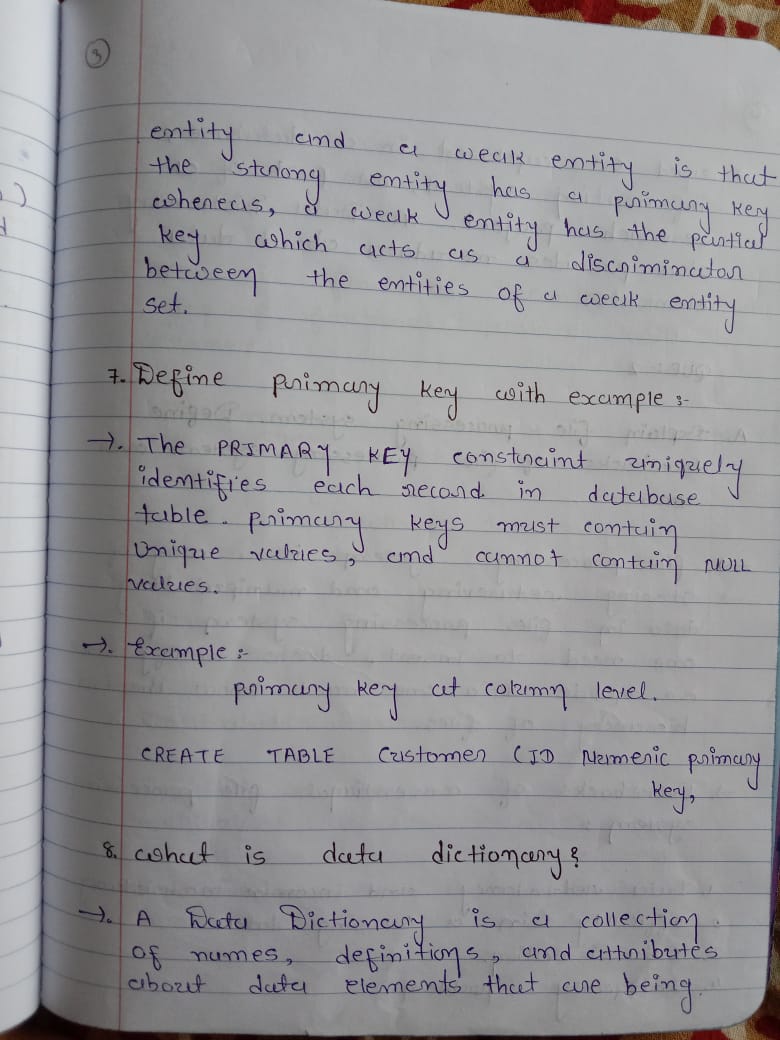 3
entity and a weak entity is that
the strong entity has a primary key
whereas, a weak entity has the partial
key which acts as a discriminator
between the entities of a weak entity
set.
7. Define primary key with example :-
→. The PRIMARY KEY constraint uniquely
identifies each record in database
table. primary keys must contain
Unique values, and cannot contain NULL
values.
→. Example :-
primary key at column level.
CREATE TABLE Customer (ID Numeric primary
key,
8. What is data dictionary?
→. A Data Dictionary is a collection
of names, definitions, and attributes
about data elements that are being